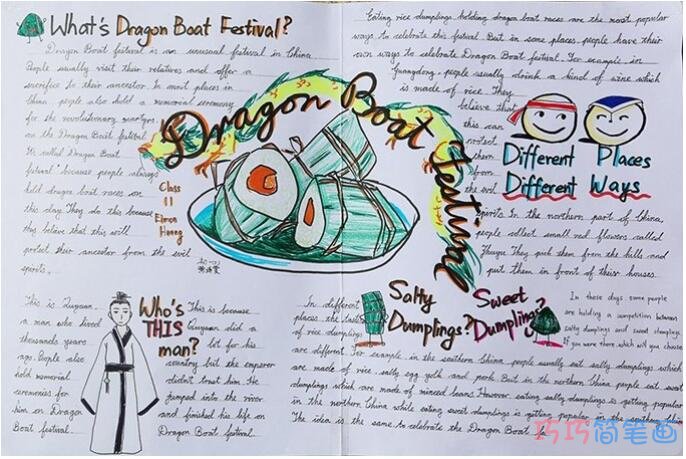 What's Dragon Boat Festival?
Dragon Boat festival is an unusual festival in China.
People usually visit their relatives and offer a
sacrifice to their ancestor. In most places in
China, people also hold a memorial ceremony
for the revolutionary martyrs
on the Dragon Boat festival
It's called Dragon Boat
festival because people always
hold dragon boat races on
this day. They do this because
they believe that this will
protect their ancestor from the evil
spirits.
Dragon Boat Festival
Class
11
初一(1)
Eating rice dumplings holding dragon boat races are the most popular
ways to celebrate this festival. But in some places people have their
own ways to celebrate Dragon Boat festival. For example in
Guangdong, people usually drink a kind of wine which
is made of rice. They
believe that
this can
protect
them
from
the evil
spirits. In the northern part of China,
people collect small red flowers called
They pick them from the hills and
put them in front of their houses.
Different Places
Different Ways
Who's
THIS
man?
This is Quyuan
a man who lived
thousands years
ago. People also
hold memorial
ceremonies for
him on Dragon
Boat festival.
This is because
Quyuan did a
lot for his
country but the emperor
didn't trust him. He
jumped into the river
and finished his life on
Dragon Boat festival.
Salty
Dumplings?
Sweet
Dumplings?
In different
places, the taste
of rice dumplings
are different. For example in the southern China, people usually eat salty dumplings which
are made of rice, salty egg yolk and pork. But in the northern China, people eat sweet
dumplings which are made of minced beans. However, eating salty dumplings is getting popular
in the northern China while eating sweet dumplings is getting popular in the southern China
The idea is the same to celebrate the Dragon Boat
In these days, some people
are holding a competition between
salty dumplings and sweet dumplings
If you were there, which will you choose
巧巧简笔画